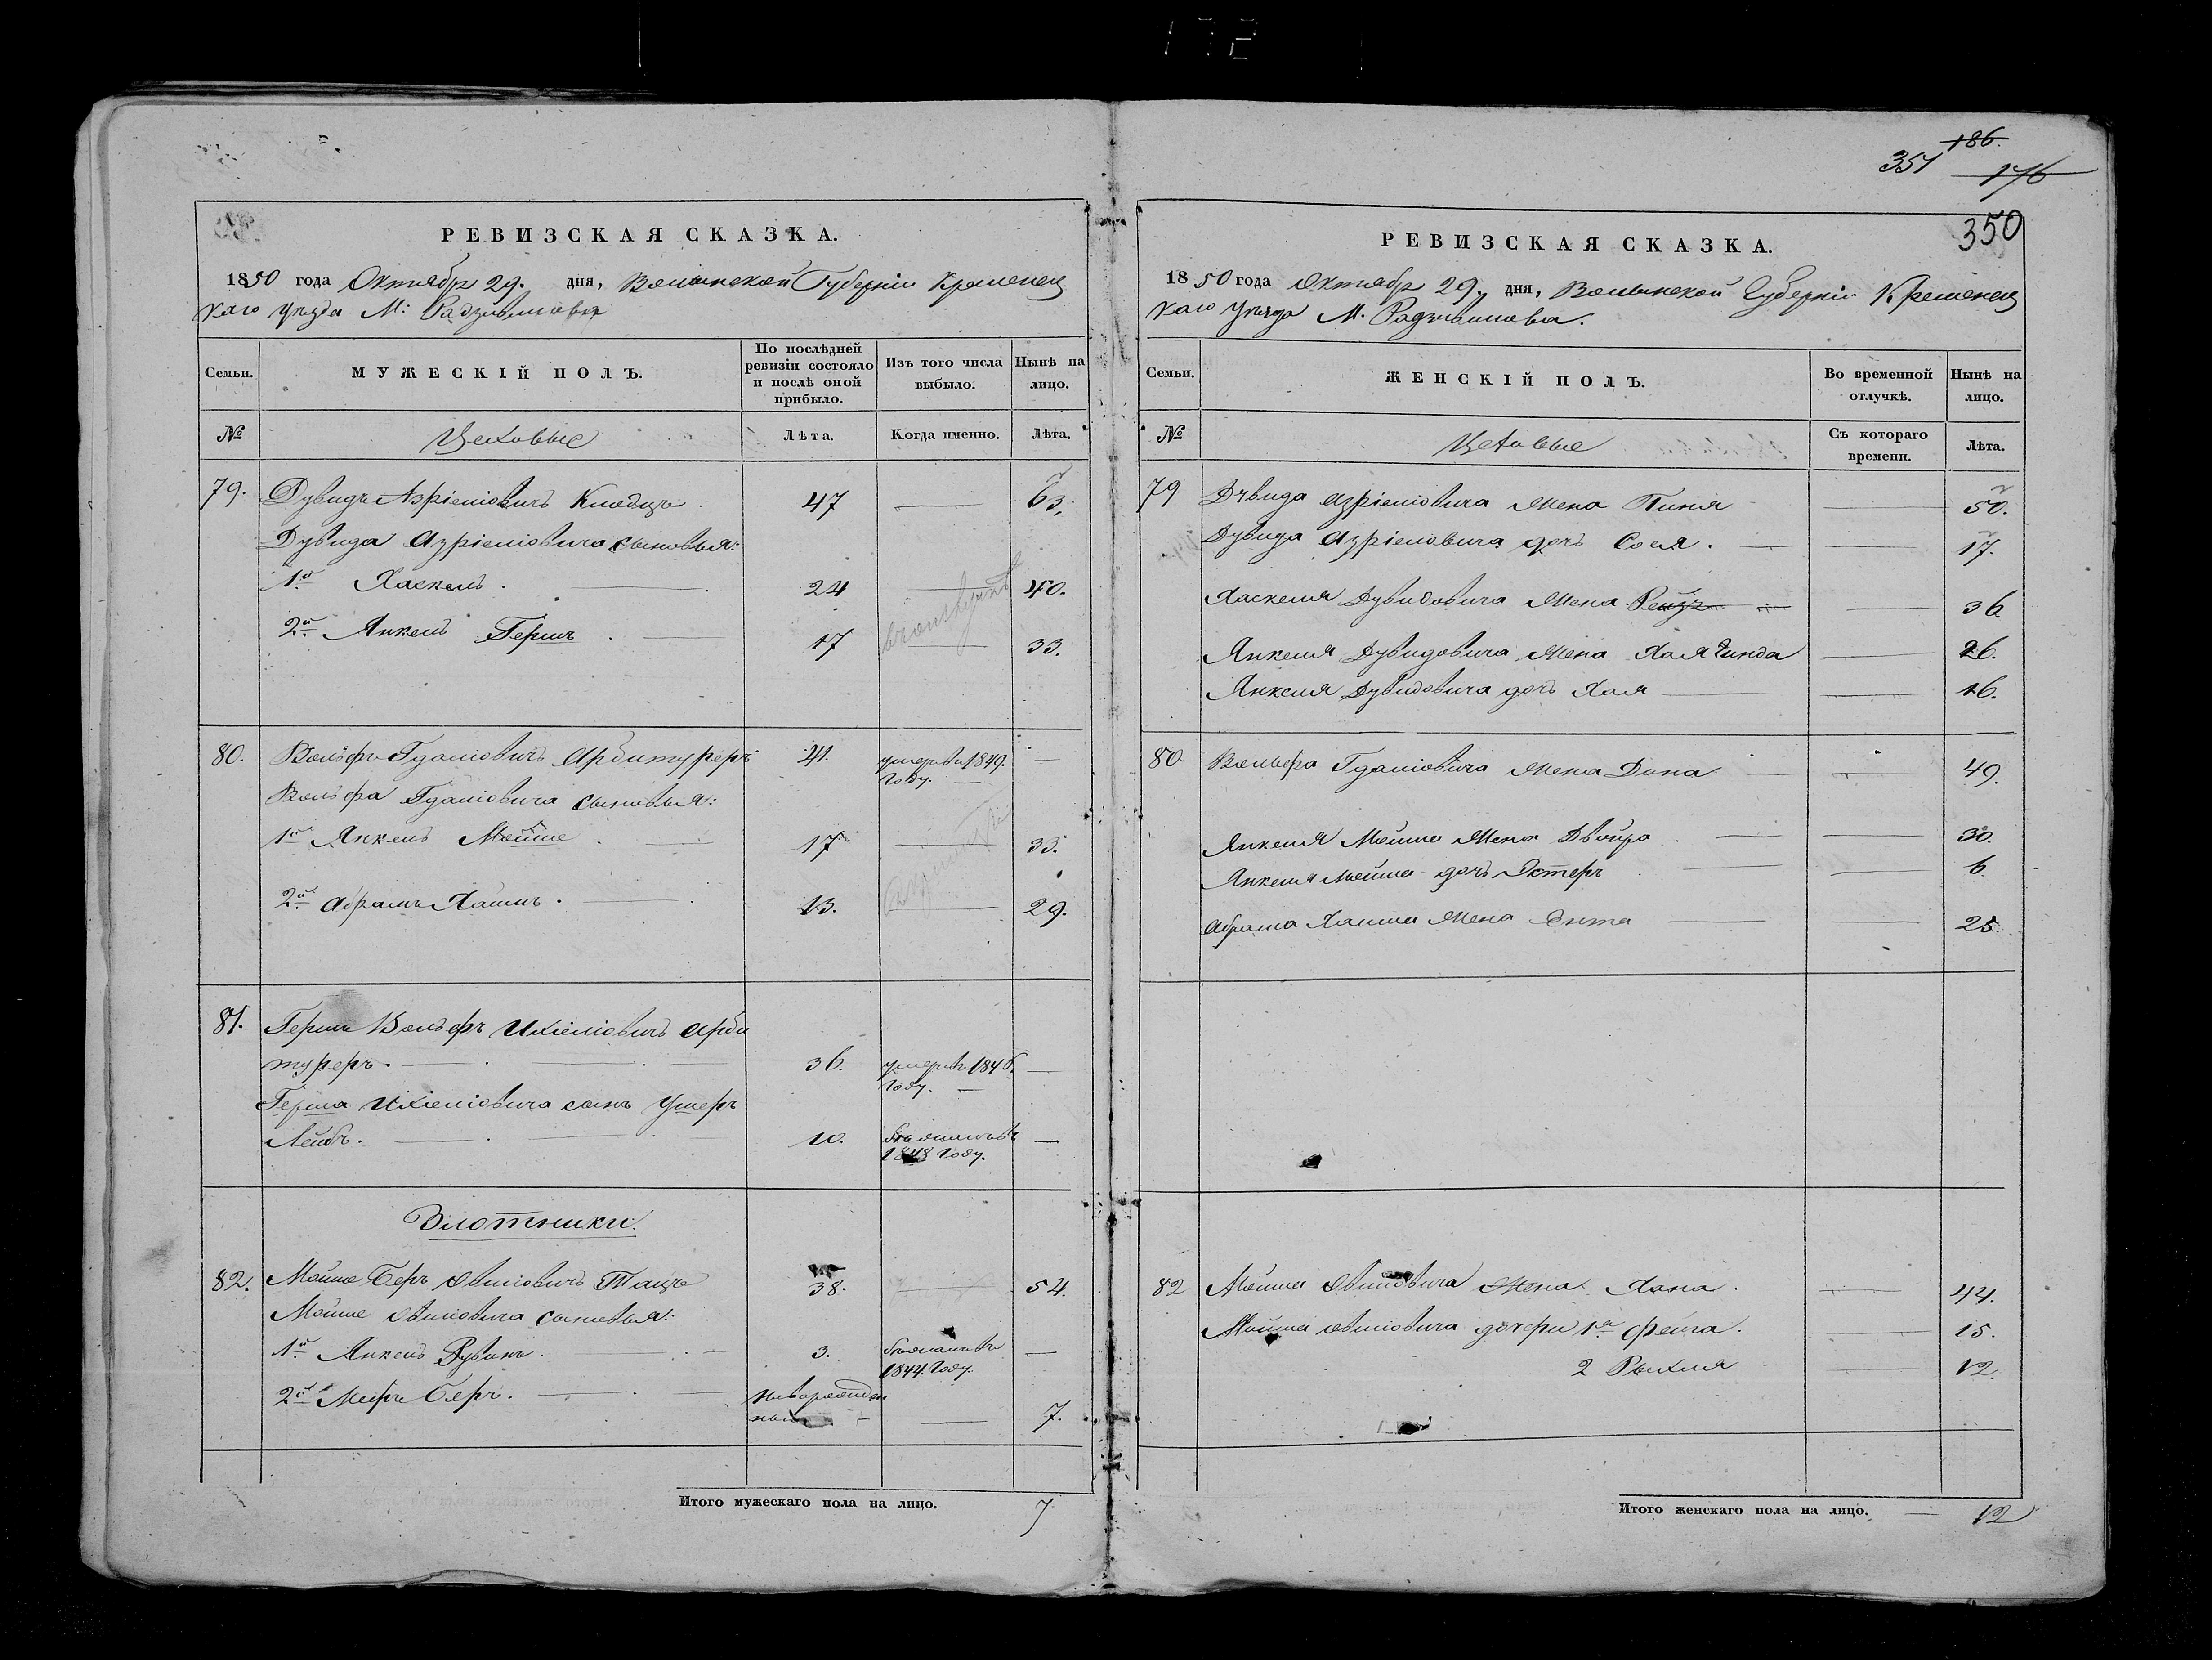 186.
351 176
350
РЕВИЗСКАЯ СКАЗКА.
1850 года Октября 29. дня, Волынской Губерніи Кременец
каго уезда М: Радзивилова
Семьи. МУЖЕСКІЙ ПОЛЪ. По послѣдней ревизіи состояло и послѣ оной прибыло. Изъ того числа выбыло. Нынѣ на лицо.
№ Цеховые Лѣта. Когда именно. Лѣта.
79. Дувидъ Азріеліовичъ 47 — 63.
Дувида Азріеліовича сыновья:
1й Хаскель. 24 — 40.
2й Янкель Гершъ 17 — 33.
80. Вольфъ Гдаліовичъ Арбитуреръ 41. умеръ въ 1849. —
году.
Вольфа Гдаліовича сыновья:
1й Янкель Мойше 17 — 33.
2й Абрамъ Хаимъ. 13. — 29.
81. Гершъ Вольфъ Ихіеліовичъ Арби
туреръ. 36. умеръ въ 1846. —
году.
Герша Ихіеліовича сынъ Ушеръ
Лейбъ. 10. 1848 году. —
Злотники.
82. Мойше Беръ 38. — 54.
Мойше сыновья:
1й Янкель Рувинъ. 3. —
1844 году.
2й Меиръ Беръ. новорожден
ный — 7.
Итого мужескаго пола на лицо. 7
РЕВИЗСКАЯ СКАЗКА.
1850 года Октября 29. дня, Волынской Губерніи Кременец
каго уезда М. Радзивилова.
Семьи. ЖЕНСКІЙ ПОЛЪ. Во временной отлучкѣ. Нынѣ на лицо.
№ Цеховые Съ котораго времени. Лѣта.
79 Дувида Азріеліовича жена Пиня — 50.
Дувида Азріеліовича дочь Сося. — 17.
Хаскеля Дувидовича жена — 36
Янкеля Дувидовича жена Хая — 26.
Янкеля Дувидовича дочь Хая — 16.
80. Вольфа Гдаліовича жена Дина — 49.
Янкеля Мойше жена Двойра — 30.
Янкеля Мойше дочь Эстеръ — 6.
Абрама Хаима жена Энта — 25
82 Мойше жена Хана. — 44.
Мойше дочери 1я Фейга. — 15.
2 Рыхля — 12.
Итого женскаго пола на лицо. — 12